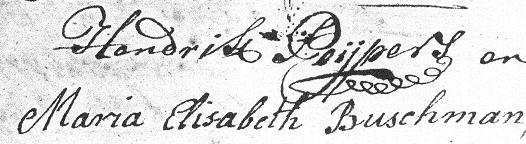 Hendrik Peijpers en
Maria Elisabeth Buschman